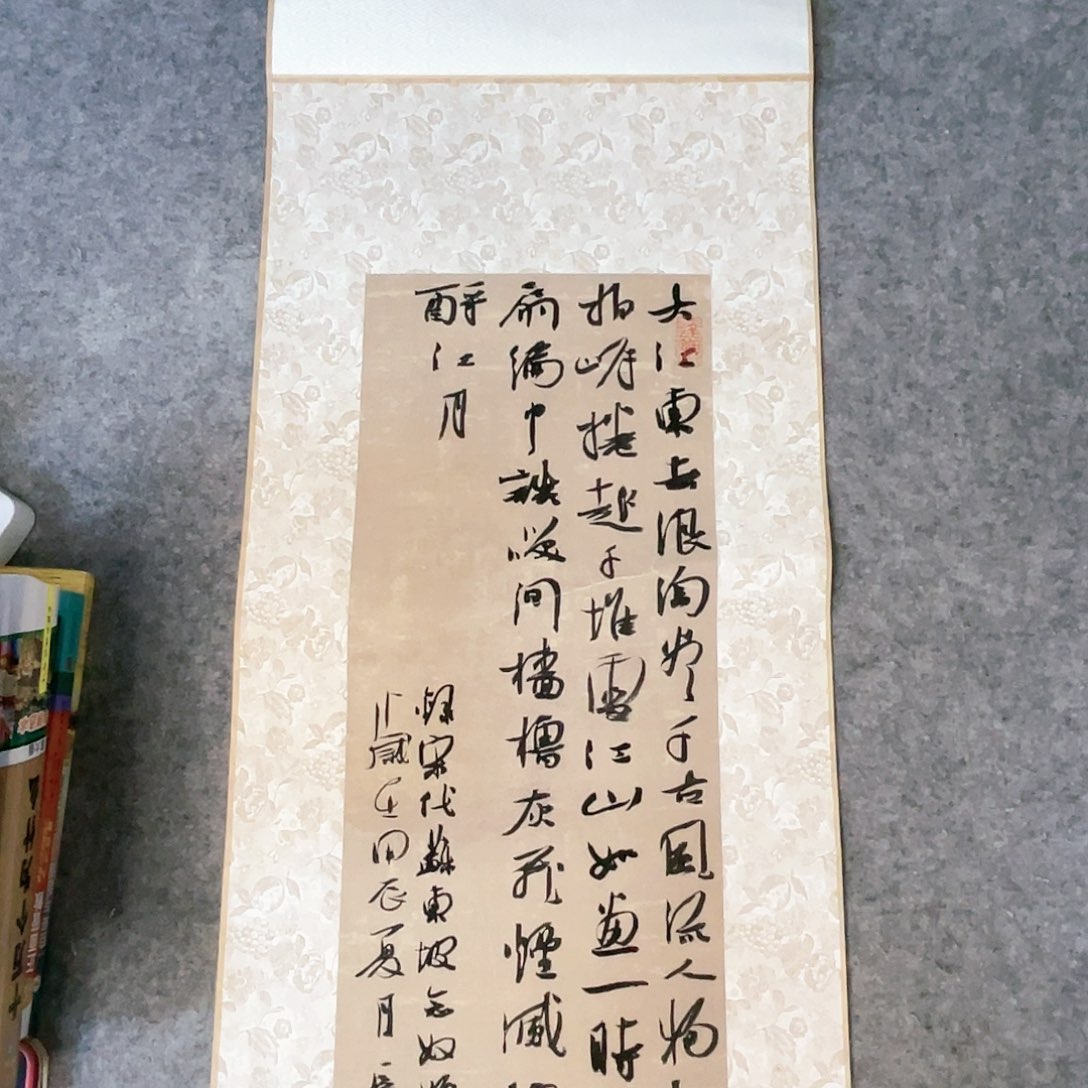 大江東去浪淘盡千古風流人物
拍岸捲起千堆雪江山如畫一時
扇綸巾談笑间檣櫓灰飛煙滅
酹江月
録宋代蘇東坡念奴
歲在甲辰夏月